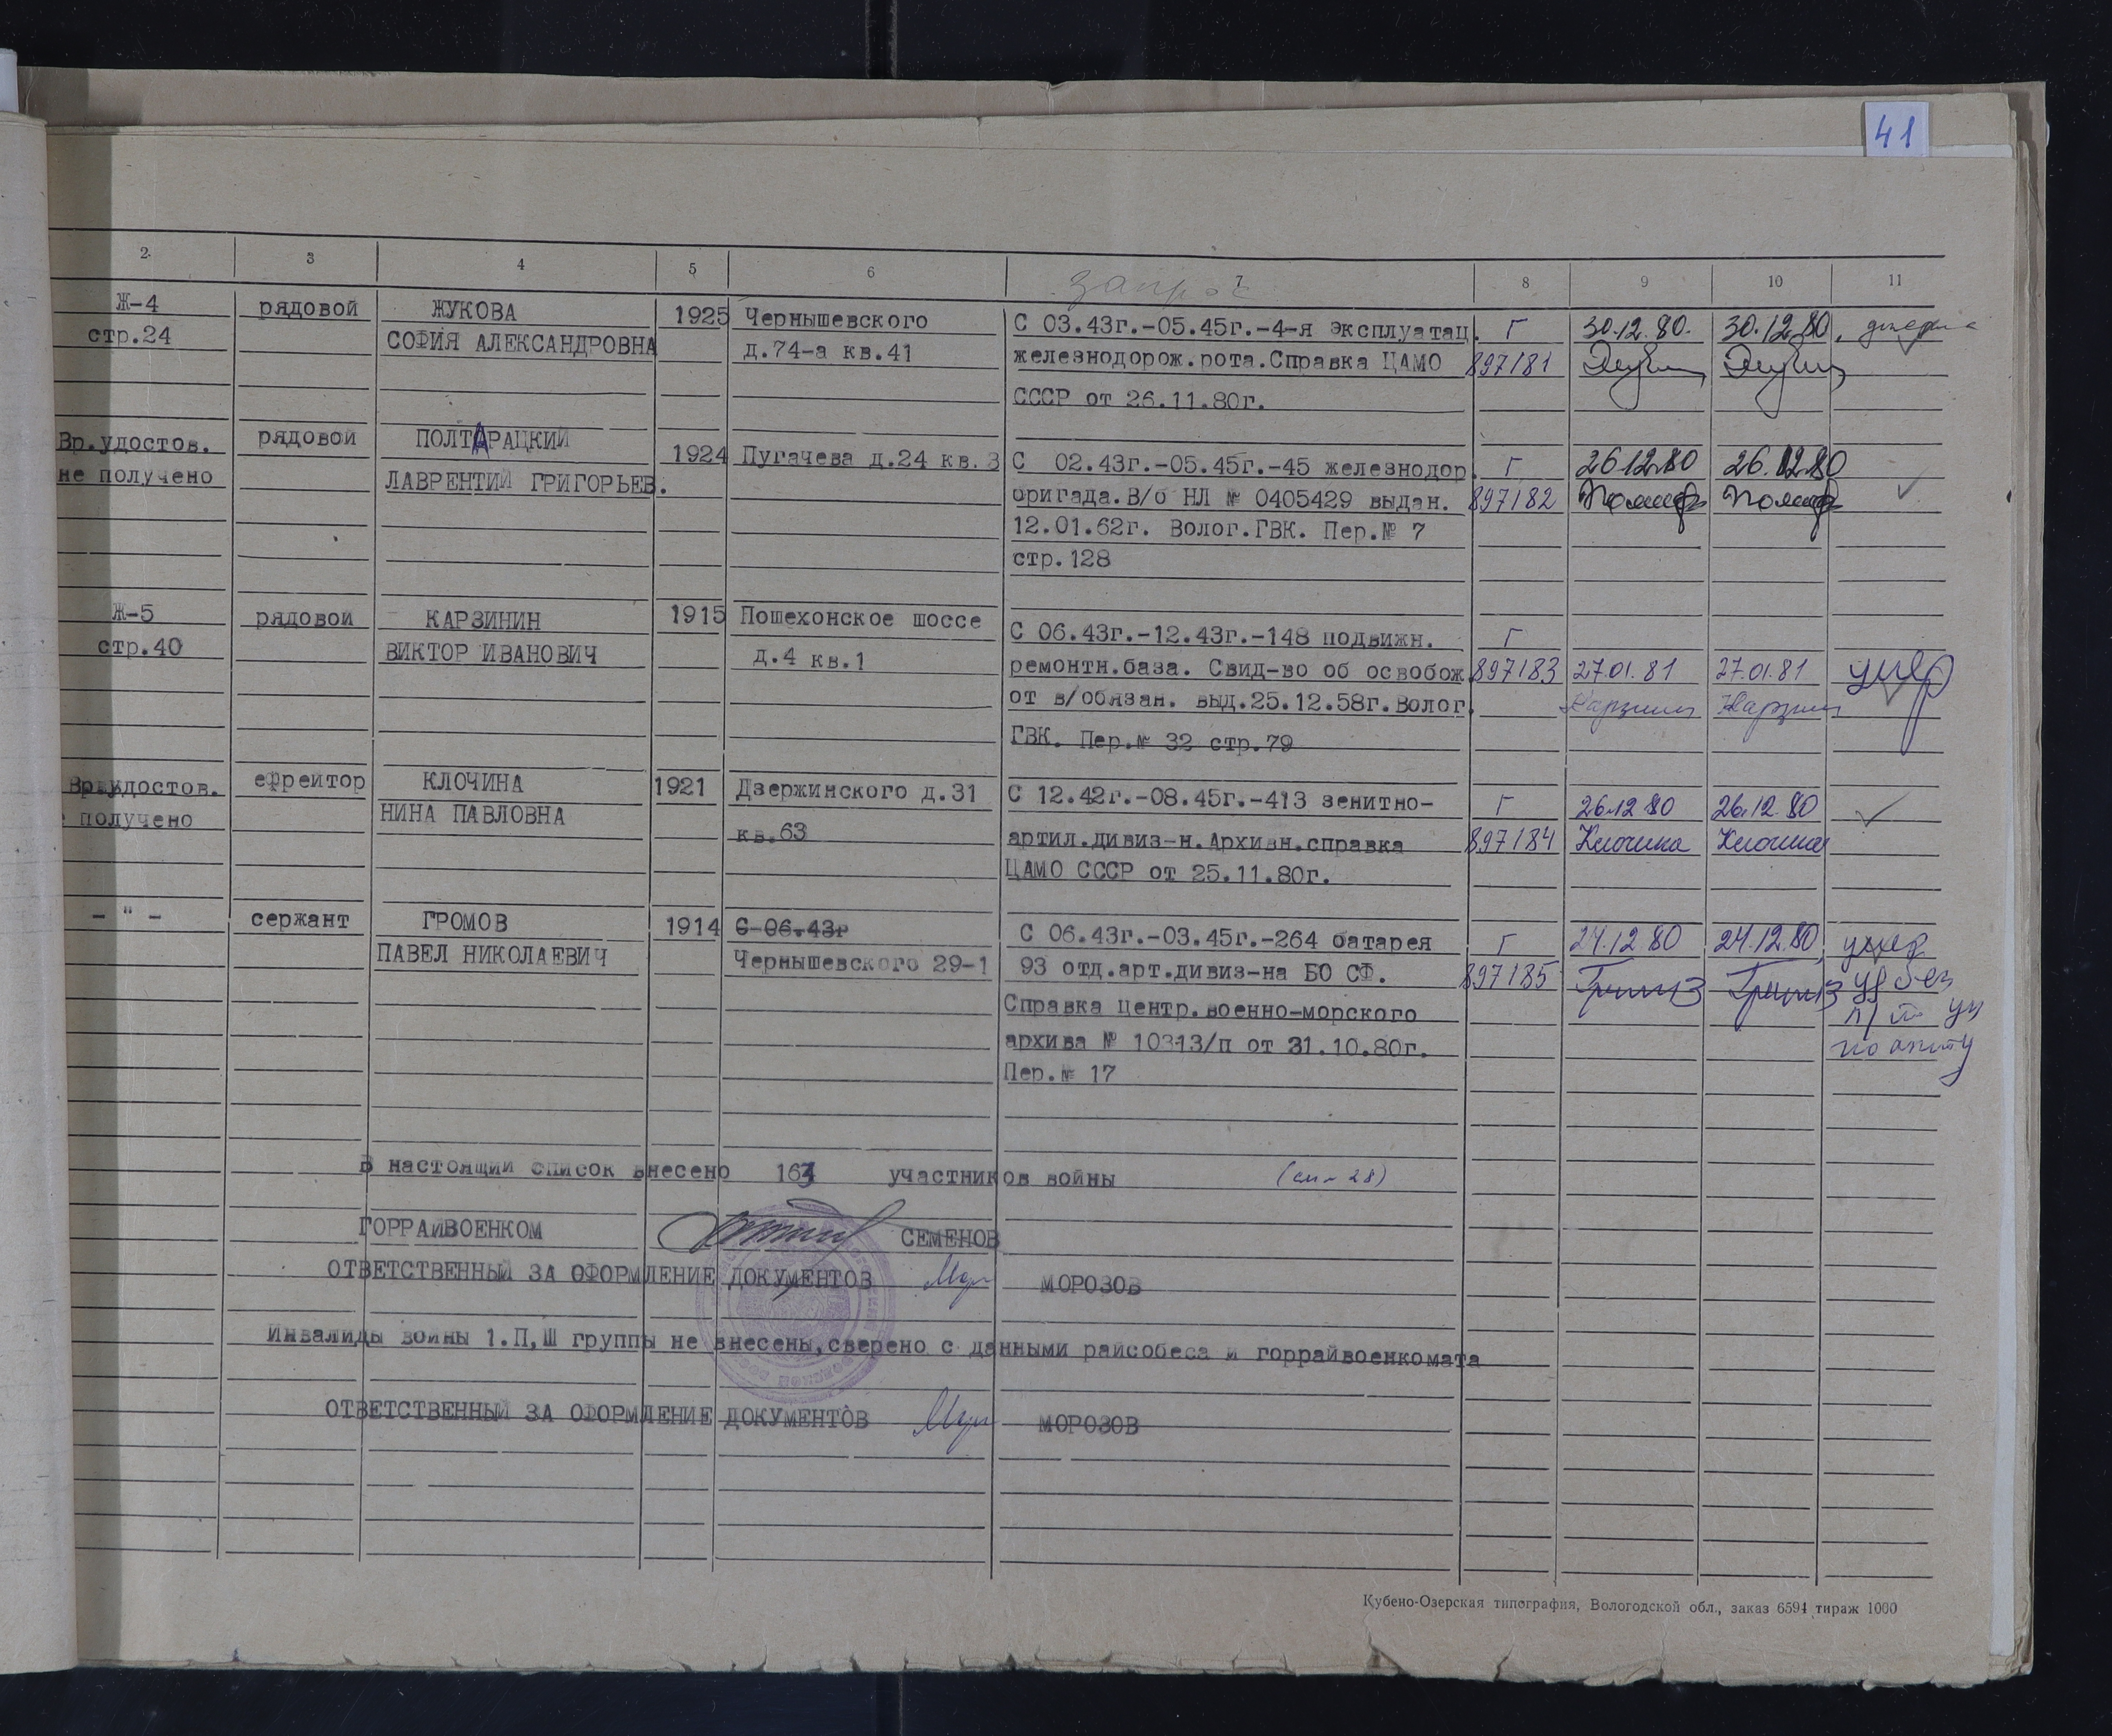 41
2 3 4 5 6 7 8 9 10 11
запрос
Ж-4 рядовой ЖУКОВА 1925 Чернышевского С 03.43г.-05.45г.-4-я эксплуатац. Г 30.12.80. 30.12.80.
стр.24 СОФИЯ АЛЕКСАНДРОВНА д.74-а кв.41 железнодорож.рота.Справка ЦАМО 897181
СССР от 26.11.80г.
Вр.удостов. рядовой ПОЛТАРАЦКИЙ 1924 Пугачева д.24 кв.3 С 02.43г.-05.45г.-45 железнодор. Г 26.12.80 26.12.80
не получено ЛАВРЕНТИЙ ГРИГОРЬЕВ. бригада.В/б НЛ № 0405429 выдан. 897182
12.01.62г. Волог.ГВК. Пер.№ 7
стр.128
Ж-5 рядовой КАРЗИНИН 1915 Пошехонское шоссе С 06.43г.-12.43г.-148 подвижн. Г
стр.40 ВИКТОР ИВАНОВИЧ д.4 кв.1 ремонтн.база. Свид-во об освобож. 897183 27.01.81 27.01.81 умер
от в/обязан. выд.25.12.58г.Волог.
ГВК. Пер.№ 32 стр.79
Вр.удостов. ефрейтор КЛОЧИНА 1921 Дзержинского д.31 С 12.42г.-08.45г.-413 зенитно- Г 26.12.80 26.12.80
получено НИНА ПАВЛОВНА кв.63 артил.дивиз-н.Архивн.справка 897184 Клочина Клочина
ЦАМО СССР от 25.11.80г.
- " - сержант ГРОМОВ 1914 С 06.43г С 06.43г.-03.45г.-264 батарея Г 24.12.80 24.12.80 умер
ПАВЕЛ НИКОЛАЕВИЧ Чернышевского 29-1 93 отд.арт.дивиз-на БО СФ. 897185
Справка Центр.военно-морского
архива № 10313/п от 31.10.80г.
Пер.№ 17
В настоящий список внесено 163 участников войны
ГОРРАЙВОЕНКОМ СЕМЕНОВ
ОТВЕТСТВЕННЫЙ ЗА ОФОРМЛЕНИЕ ДОКУМЕНТОВ МОРОЗОВ
Инвалиды войны 1.П,Ш группы не внесены,сверено с данными райсобеса и горрайвоенкомата
ОТВЕТСТВЕННЫЙ ЗА ОФОРМЛЕНИЕ ДОКУМЕНТОВ МОРОЗОВ
Кубено-Озерская типография, Вологодской обл., заказ 6594 тираж 1000